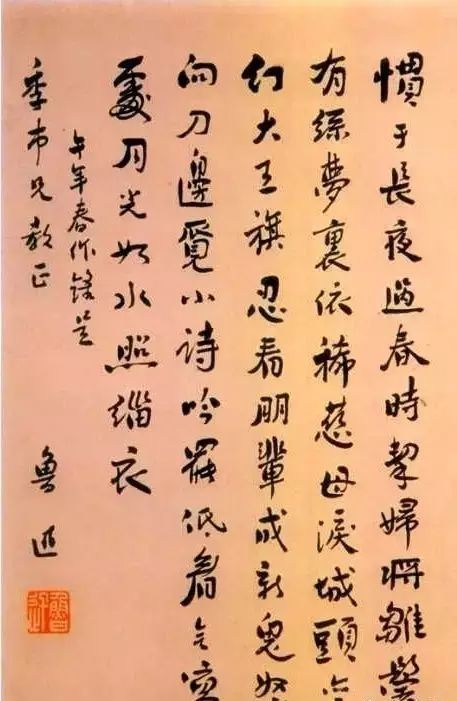 慣于長夜過春時挈婦將雛鬢
有絲夢裏依稀慈母淚城頭
幻大王旗忍看朋輩成新鬼怒
向刀邊覓小詩吟罷低眉無寫
處月光如水照緇衣
午年春作錄呈
季市兄教正
魯迅